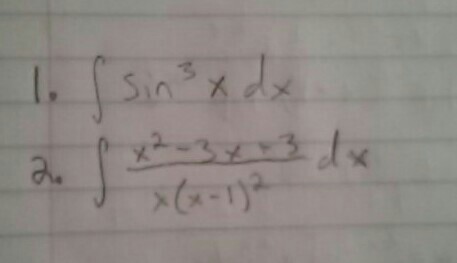 1. ∫ sin³ x dx
2. ∫ x²-3x+3 / x(x-1)² dx